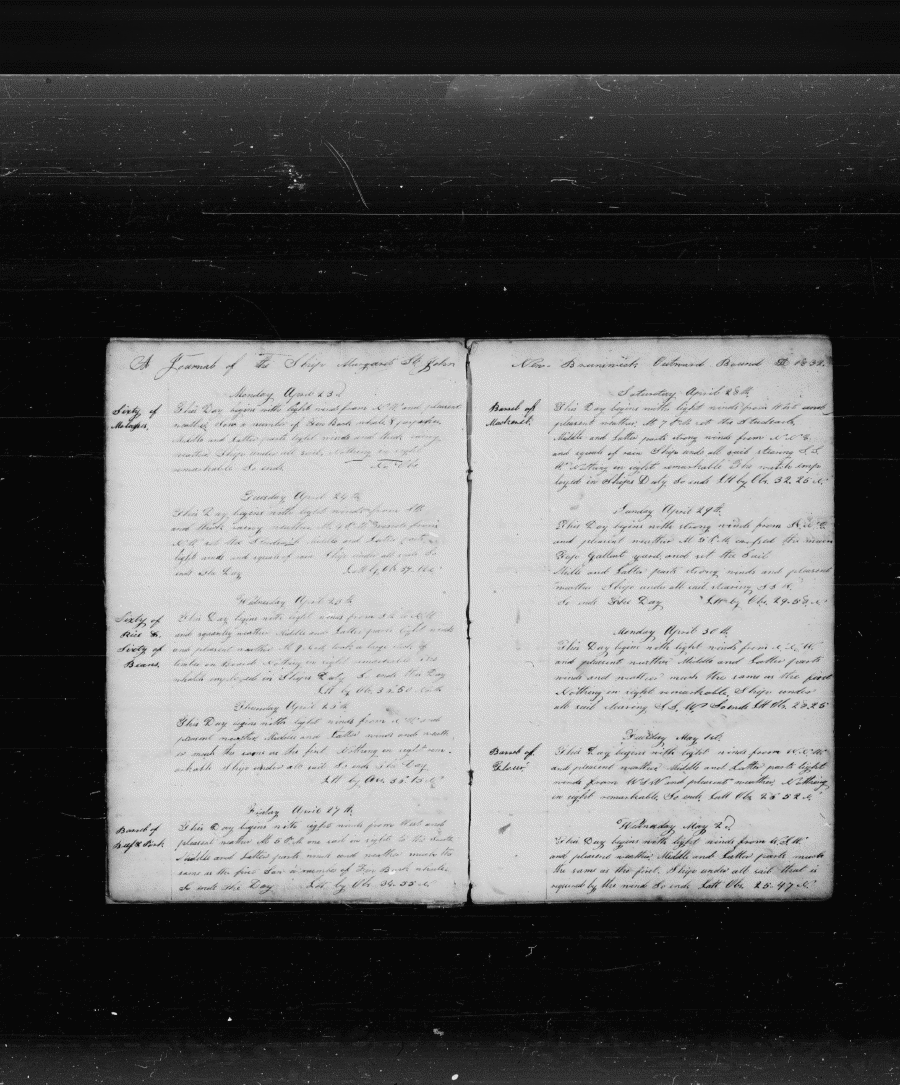 A Journal of the Ship Margaret St. John
Monday April 23d
Sixty of
Molasses
This Day begins with light winds from N W and pleasant
weather Saw a number of Fin Back whale &
Middle and Latter parts light winds and thick rainy
weather Ship under all sail Nothing in sight
remarkable So ends No Obs
Tuesday April 24th
This Day begins with light winds from
and thick rainy weather At 4 P.M.
set the Middle and Latter parts
light winds and squalls of rain Ship under all sail So
ends the Day Latt by Ob 37.
Wednesday April 25th
Sixty of
Rice &
Sixty of
Beans
This Day begins with light winds from
and squally weather Middle and Latter parts light winds
and pleasant weather At 9 took a large stick of
timber on board Nothing in sight remarkable The
employed in Ships Duty So ends the Day
Latt by Ob 35 50 N
Thursday April
This Day begins with light winds from N W and
pleasant weather Middle and Latter winds and weath
is much the same as the first Nothing in sight rem-
arkable Ship under all sail So ends the Day
Latt by Obs 35 15 N
Friday April 27th
Barrel of
Beef & Pork
This Day begins with light winds from that and
pleasant weather At 5 P.M. one sail in sight to the South
Middle and Latter parts wind and weather much the
same as the first Saw a number of Fin Back whales
So ends the Day Latt by Ob 34.35 N
New Brunswick Outward Bound 1838.
Saturday April 28th
Barrel of
Mackerel
This Day begins with light winds from West and
pleasant weather, At 7 P.M. set the Studsails,
Middle and Latter parts strong winds from N N E.
and squalls of rain Ship under all sail stearing S S
W Nothing in sight remarkable The watch emp
loyed in Ships Duty So ends Latt by Ob. 32.25 N
Sunday April 29th
This Day begins with strong winds from N N E
and pleasant weather At 5 P.M. crossed the main
Top Gallant yard, and set the Sail
Middle and Latter parts strong winds and pleasant
weather Ship under all sail stearing
So ends This Day, Latt by Obs. 29.50 N
Monday April 30th
This Day begins with light winds from N. N. W.
and pleasant weather Middle and Latter parts
winds and weather much the same as the first
Nothing in sight remarkable, Ship under
all sail stearing S.S.W. So ends Latt Ob. 28.25
Tuesday May 1st
Barrel of
Flour
This Day begins with light winds from N. N. W
and pleasant weather Middle and Latter parts light
winds from W S W and pleasant weather, Nothing
in sight remarkable, So ends Latt Ob. 26 52 N
Wednesday May 2d
This Day begins with light winds from W. S. W.
and pleasant weather Middle and Latter parts much
the same as the first, Ship under all sail that is
required by the wind So ends Latt Obs. 25.47 N